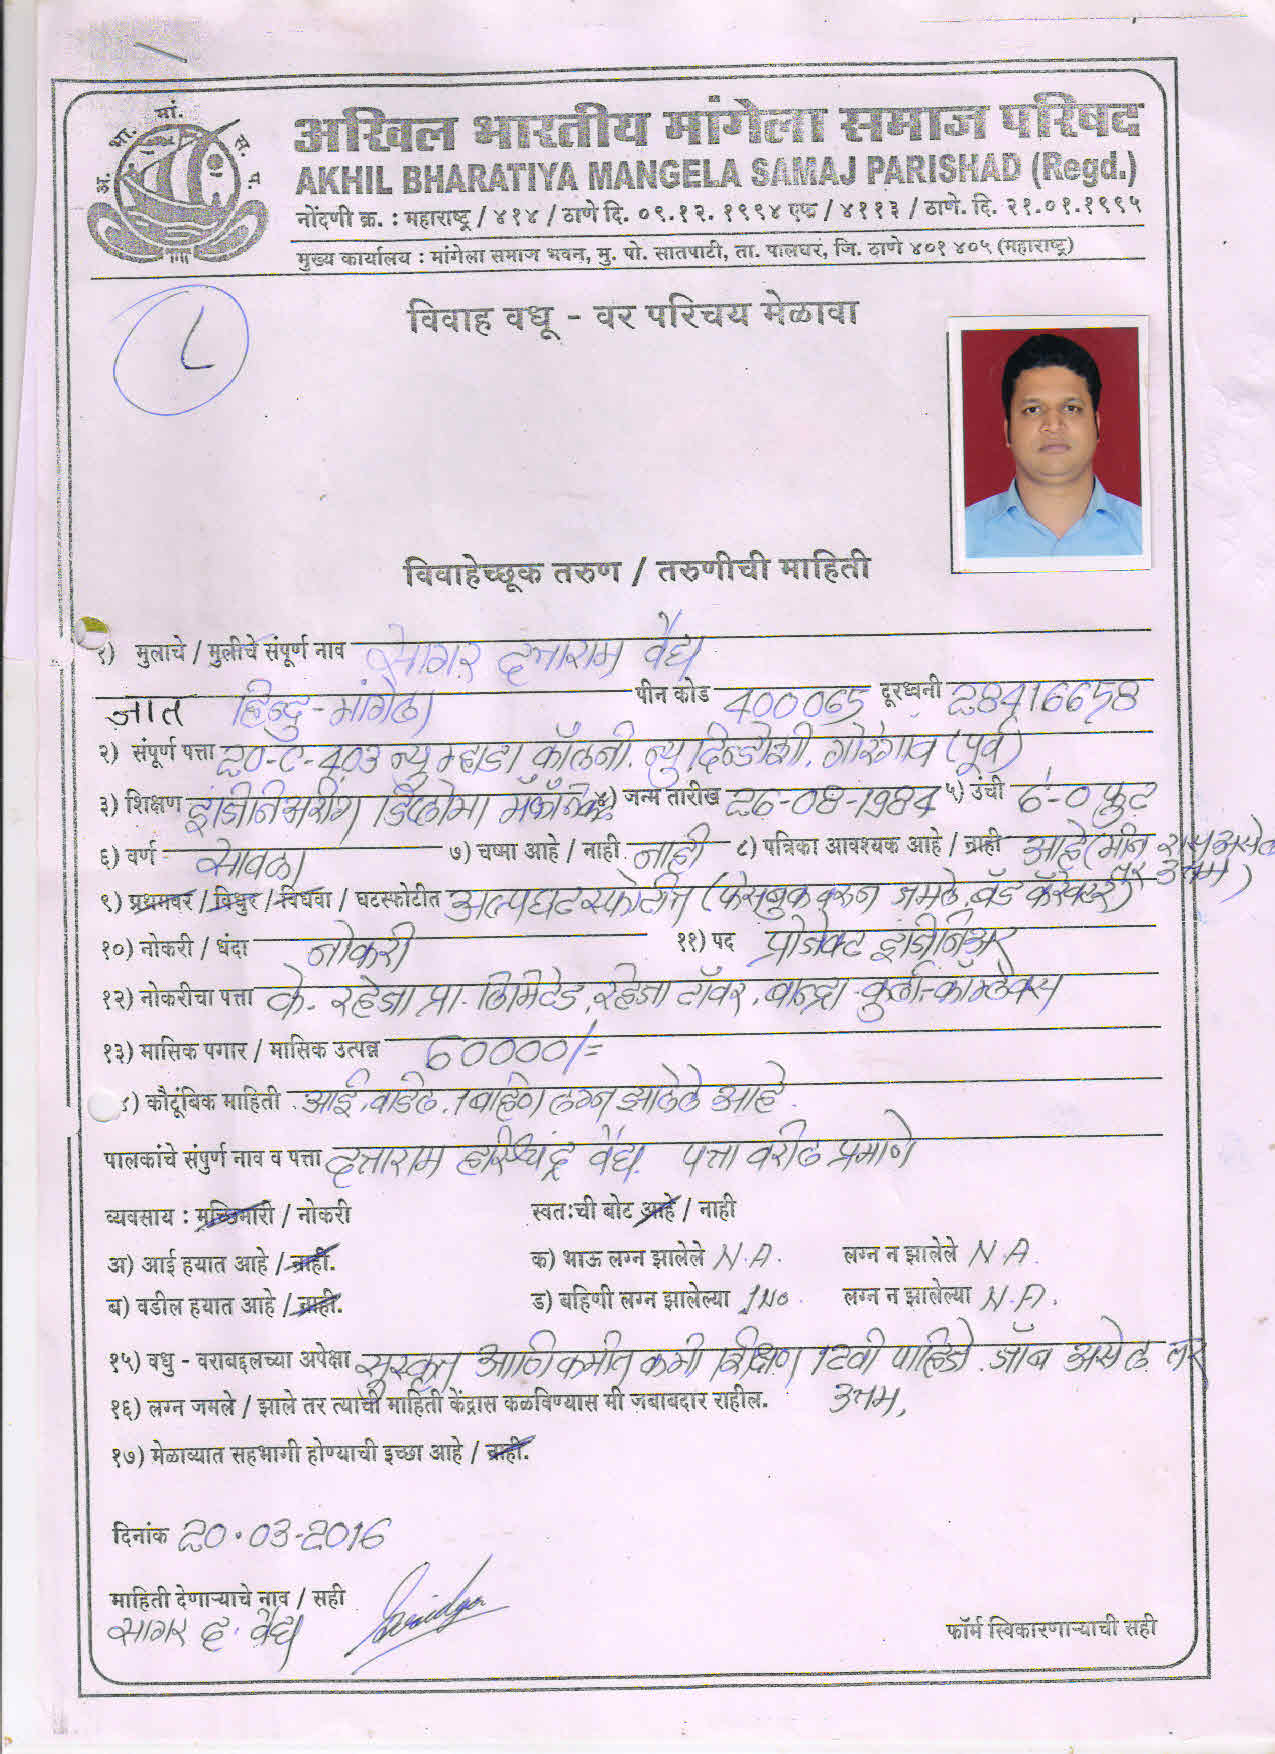 अ. भा. मां. स. प.
अखिल भारतीय मांगेला समाज परिषद
AKHIL BHARATIYA MANGELA SAMAJ PARISHAD (Regd.)
नोंदणी क्र. : महाराष्ट्र / ४१४ / ठाणे दि. ०९.१२. १९९४ एफ / ४११३ / ठाणे. दि. २१.०१.१९९५
मुख्य कार्यालय : मांगेला समाज भवन, मु. पो. सातपाटी, ता. पालघर, जि. ठाणे ४०१ ४०५ (महाराष्ट्र)
विवाह वधू - वर परिचय मेळावा
विवाहेच्छूक तरुण / तरुणीची माहिती
१) मुलाचे / मुलीचे संपूर्ण नाव सागर दत्ताराम वैद्य
जात हिन्दु-मांगेला पीन कोड 400065 दूरध्वनी 28416658
२) संपूर्ण पत्ता 20-C-403 न्यु म्हाडा कॉलनी. न्यु दिन्डोशी. गोरेगांव (पूर्व)
३) शिक्षण इंजीनिअरींग डिप्लोमा मॅकॅनिकल ४) जन्म तारीख 26-08-1984 ५) उंची 6'-0 फुट
६) वर्ण सावळा ७) चष्मा आहे / नाही नाही ८) पत्रिका आवश्यक आहे / नाही आहे (मीन रास असेल
तर उत्तम)
९) प्रथमवर / विधुर / विधवा / घटस्फोटीत अल्पघटस्फोटीत (फेसबुक वरून जमले, बॅड कॅरेक्टर)
१०) नोकरी / धंदा नोकरी ११) पद प्रोजेक्ट इंजीनिअर
१२) नोकरीचा पत्ता के. रहेजा प्रा. लिमिटेड, रहेजा टॉवर, बान्द्रा-कुर्ला-कॉम्प्लेक्स
१३) मासिक पगार / मासिक उत्पन्न 60000/=
४) कौटूंबिक माहिती आई, वडिल, 1 बहिण लग्न झालेले आहे.
पालकांचे संपुर्ण नाव व पत्ता दत्ताराम हरिश्चंद्र वैद्य. पत्ता वरील प्रमाणे
व्यवसाय : मच्छिमारी / नोकरी स्वतःची बोट आहे / नाही
अ) आई हयात आहे / नाही. क) भाऊ लग्न झालेले N.A. लग्न न झालेले N.A.
ब) वडील हयात आहे / नाही. ड) बहिणी लग्न झालेल्या 1No. लग्न न झालेल्या N.A.
१५) वधु - वराबद्दलच्या अपेक्षा सुस्कृत आणि कमीत कमी शिक्षण 12वी पाहिजे. जॉब असेल तर
१६) लग्न जमले / झाले तर त्याची माहिती केंद्रास कळविण्यास मी जबाबदार राहील. उत्तम,
१७) मेळाव्यात सहभागी होण्याची इच्छा आहे / नाही.
दिनांक 20.03-2016
माहिती देणाऱ्याचे नाव / सही
सागर द. वैद्य
फॉर्म स्विकारणाऱ्याची सही